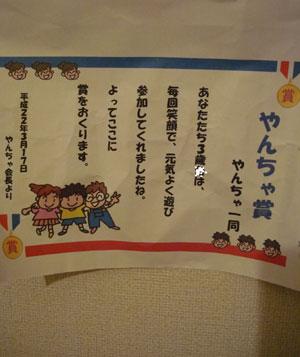 賞
やんちゃ賞
やんちゃ一同
あなたたち3歳は、
毎回笑顔で、元気よく遊び
参加してくれましたね。
よってここに
賞をおくります。
平成22年3月17日
やんちゃ会長より
賞